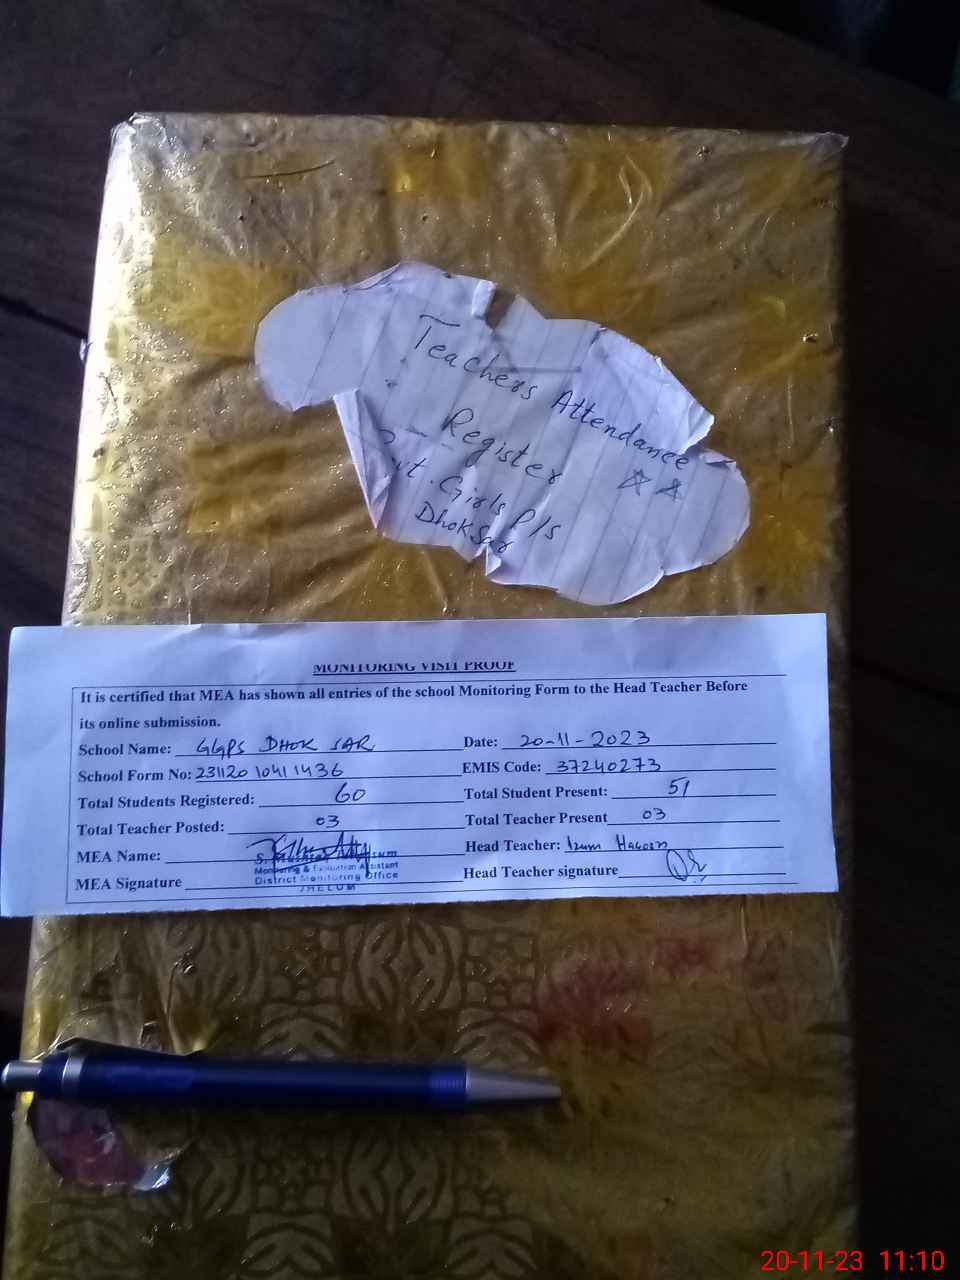 Teachers Attendance
Register
vt. Girls P/S
Dhok Sar
MONITORING VISIT PROOF
It is certified that MEA has shown all entries of the school Monitoring Form to the Head Teacher Before
its online submission.
School Name: GGPS DHOK SAR Date: 20-11-2023
School Form No: 231120 1041 1436 EMIS Code: 37240273
Total Students Registered: 60 Total Student Present: 51
Total Teacher Posted: 03 Total Teacher Present 03
MEA Name: Head Teacher:
Monitoring & Evaluation Assistant
District Monitoring Office
JHELUM
MEA Signature Head Teacher signature
20-11-23 11:10